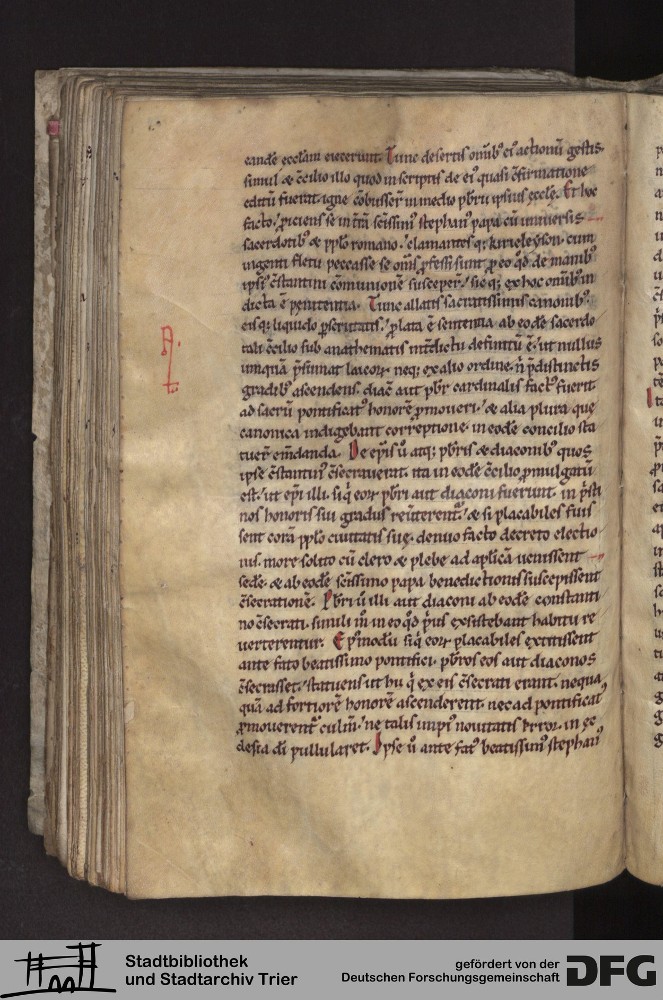 eandē ecclam eiecerunt. Tunc desertis omīb; ei' actionū gestis.
simul & c̄cilio illo quod in scriptis de ei' quasi c̄firmatione
editū fuerat. igne cōbusser̄ in medio pb̄ru ipsius eccłę. Et hoc
facto. p̄iciens se in t̄rā sc̄issim' stephan' papa cū universis
sacerdotib; & pplo romano. clamantes q; kirieleyson. cum
ingenti fletu peccasse se om̄s p̄fessi sunt p̄ eo qd̄ de manib;
ipsi' c̄stantini cōmunionē susceper̄. sicq; ex hoc omīb; in
dicta ē penitentia. Tunc allatis sacratissimis canonib;.
eisq; liquido p̄scrutatis. p̄lata ē sententia ab eodē sacerdo
tali c̄cilio sub anathematis int̄dictu definitū ē. ut nullus
umquā p̄sumat laicorꝝ neq; ex alio ordine. n̄ p̄ distinctis
gradib; ascendens. diac' aut pb̄r cardinalis fact' fuerit
ad sacrū pontificat' honorē p̄moveri. & alia plura quę
canonica indigebant correptione. in eodē concilio sta
tuer̄ em̄danda. De ep̄is ū atq; pb̄ris & diaconib; quos
ipse c̄stantin' c̄secraverat. ita in eodē c̄cilio p̄mulgatū
est. ut ep̄i illi. siq̇ eorꝝ pb̄ri aut diaconi fuerunt. in p̄sti
nos honoris sui gradus rev̄terent̄. & si placabiles fuis
sent corā pplo civitatis suę. denuo facto decreto electio
nis. more solito cū clero & plebe ad aplicā venissent
sedē. & ab eodē sc̄issimo papa benedictionis suscepissent
c̄secrationē. Pb̄ri ū illi aut diaconi ab eodē constanti
no c̄secrati. simili m̄ in eo qd̄ p̄us exsistebant habitu re
verterentur. E p̄'modū siq̇ eorꝝ placabiles extitissent
ante fato beatissimo pontifici. pb̄ros eos aut diaconos
c̄secrasset. statuens ut hii q̇ ex eis c̄secrati erant. nequa
quā ad fortiorē honorē ascenderent. nec ad pontificat'
p̄moverent̄ culm̄. ne talis impi' novitatis error. in ec
clesia dī pullularet. Ipse ū ante fat' beatissim' stephan'
Stadtbibliothek
und Stadtarchiv Trier
gefördert von der
Deutschen Forschungsgemeinschaft
DFG